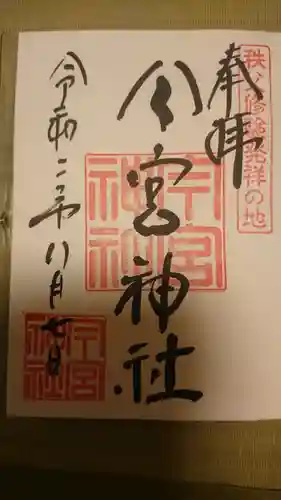 秩父修験発祥の地
奉拝
今宮神社
令和二年八月七日
今宮神社
今宮神社